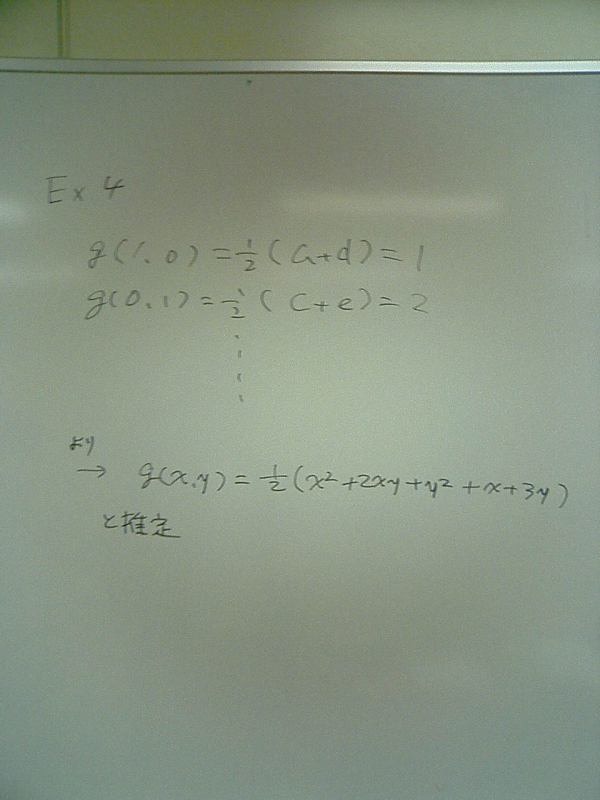 Ex 4
g(1.0) = 1/2 (a+d) = 1
g(0.1) = 1/2 (c+e) = 2
より
→ g(x.y) = 1/2 (x²+2xy+y²+x+3y)
と推定